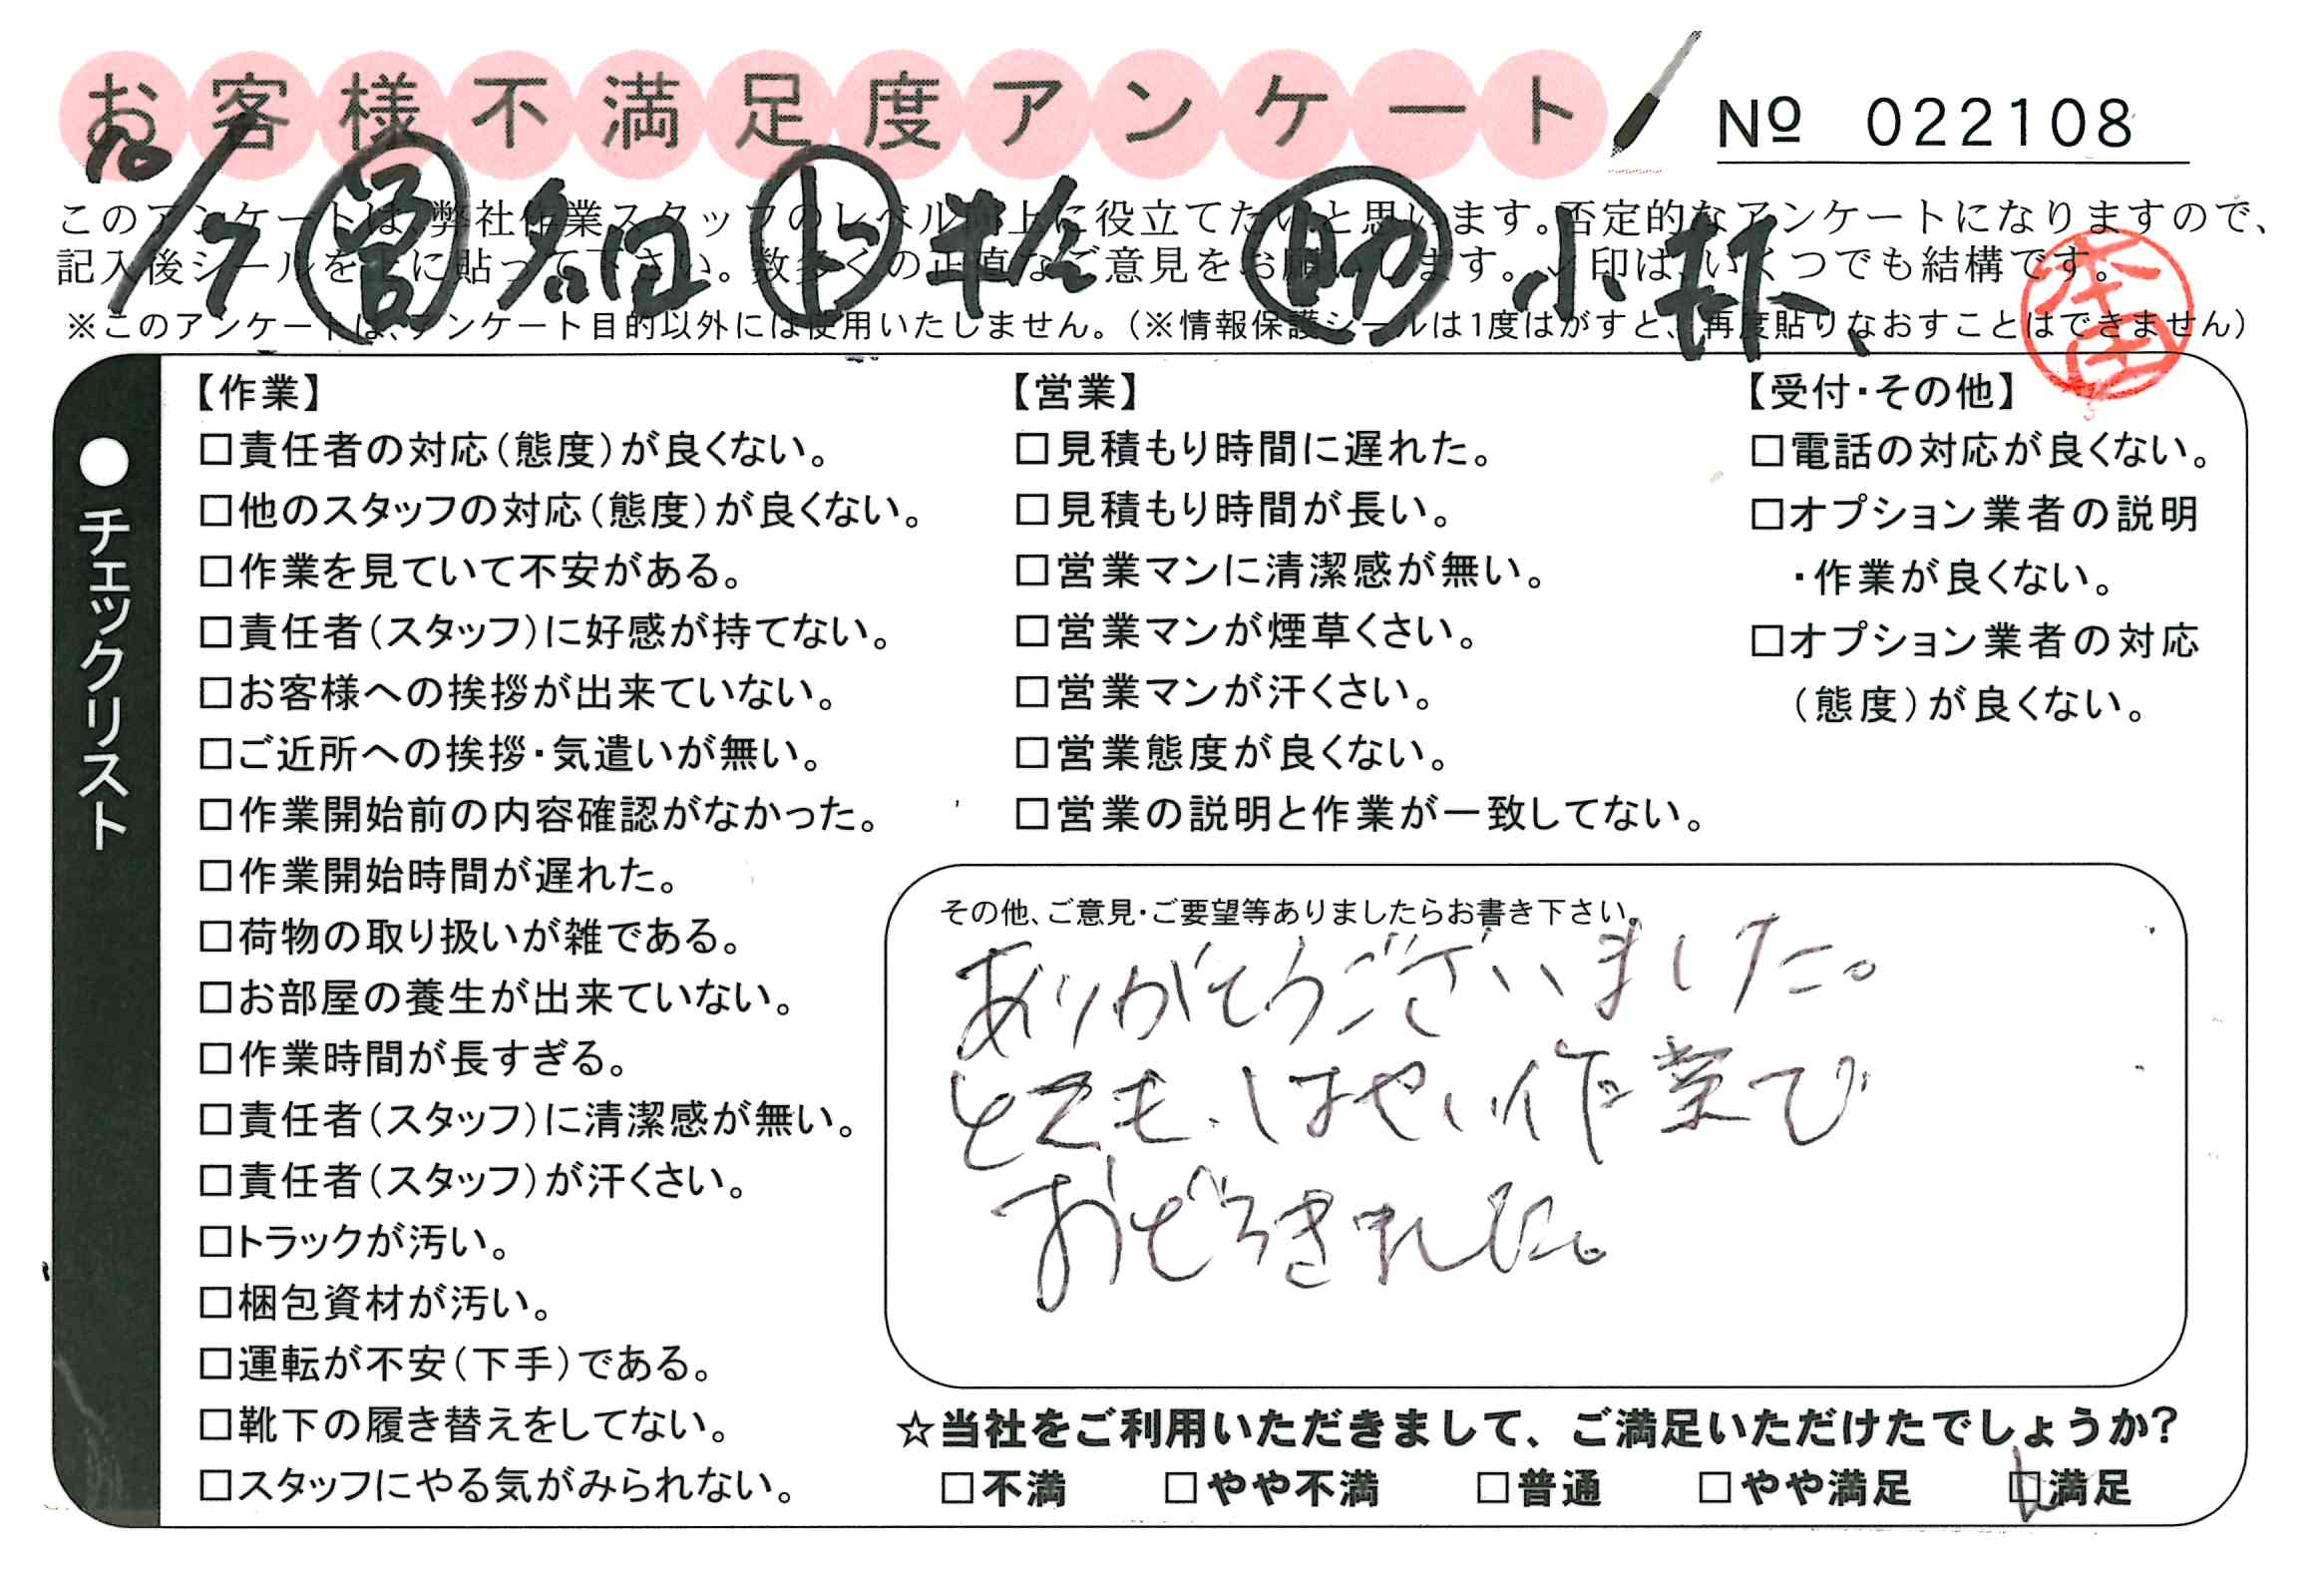 お客様不満足度アンケート
№ 022108
10/7 営 名田 ト 半松 助 小林
このアンケートは、弊社作業スタッフのレベル向上に役立てたいと思います。否定的なアンケートになりますので、
記入後シールを上に貼って下さい。数多くの正直なご意見をお願いします。レ印は、いくつでも結構です。
※このアンケートは、アンケート目的以外には使用いたしません。(※情報保護シールは1度はがすと、再度貼りなおすことはできません)
本田
●チェックリスト
【作業】
□責任者の対応(態度)が良くない。
□他のスタッフの対応(態度)が良くない。
□作業を見ていて不安がある。
□責任者(スタッフ)に好感が持てない。
□お客様への挨拶が出来ていない。
□ご近所への挨拶・気遣いが無い。
□作業開始前の内容確認がなかった。
□作業開始時間が遅れた。
□荷物の取り扱いが雑である。
□お部屋の養生が出来ていない。
□作業時間が長すぎる。
□責任者(スタッフ)に清潔感が無い。
□責任者(スタッフ)が汗くさい。
□トラックが汚い。
□梱包資材が汚い。
□運転が不安(下手)である。
□靴下の履き替えをしてない。
□スタッフにやる気がみられない。
【営業】
□見積もり時間に遅れた。
□見積もり時間が長い。
□営業マンに清潔感が無い。
□営業マンが煙草くさい。
□営業マンが汗くさい。
□営業態度が良くない。
□営業の説明と作業が一致してない。
【受付・その他】
□電話の対応が良くない。
□オプション業者の説明
・作業が良くない。
□オプション業者の対応
(態度)が良くない。
その他、ご意見・ご要望等ありましたらお書き下さい。
ありがとうございました。
とても、はやい作業で
おどろきました。
☆当社をご利用いただきまして、ご満足いただけたでしょうか?
□不満 □やや不満 □普通 □やや満足 ☑満足